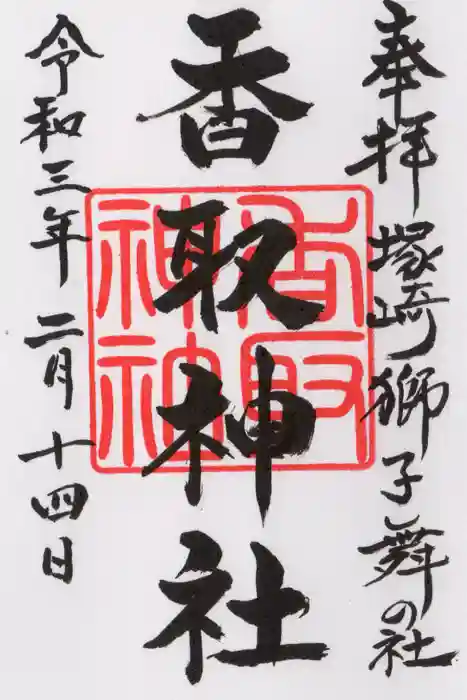 奉拝 塚崎獅子舞の社
香取神社
令和三年 二月 十四日
香取
神社